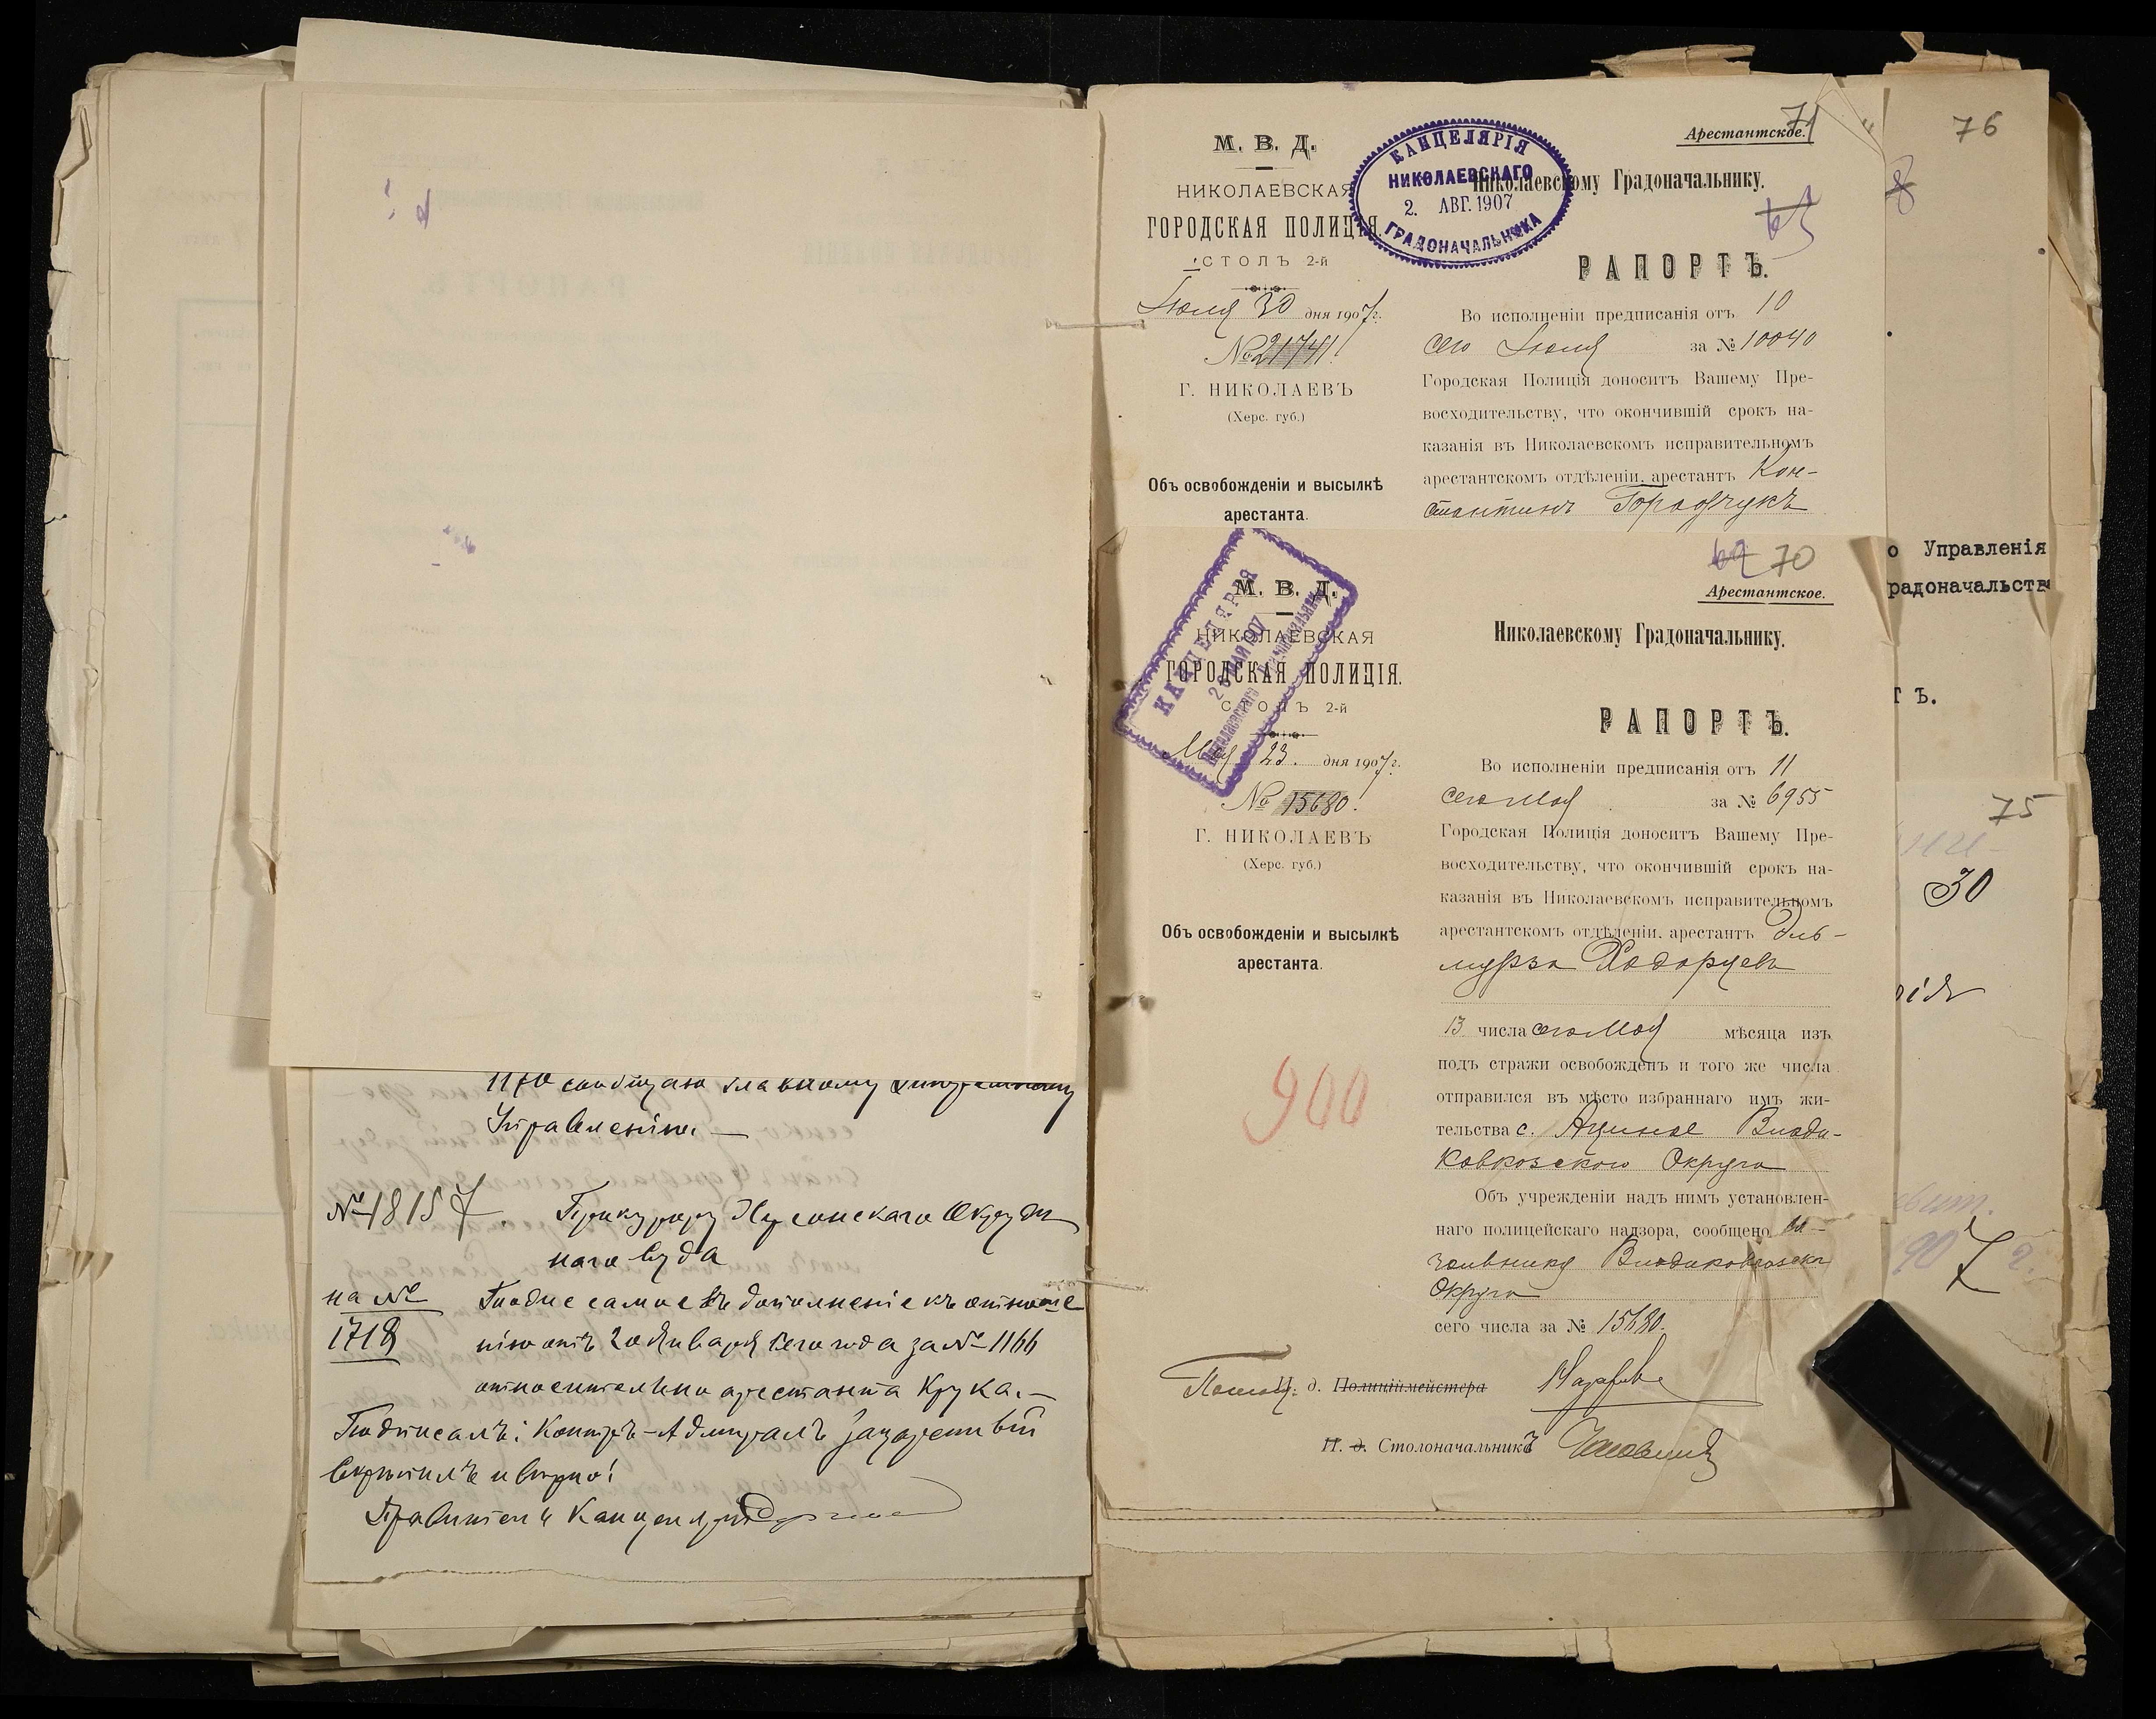 Управленію. —
№ 1815
Прокурору Херсонскаго Окруж
наго Суда
на №
1718
Тоже самое въ дополненіе къ отноше
нію отъ 20 Января сего года за № 1166
относительно арестанта Крука. —
Подписалъ: Контръ-Адмиралъ
Скрѣпилъ и вѣрно!
Правитель Канцеляріи
71
Арестантское.
М. В. Д.
НИКОЛАЕВСКАЯ
ГОРОДСКАЯ ПОЛИЦІЯ.
СТОЛЪ 2-й
Іюля 30 дня 1907 г.
№ 21741
Г. НИКОЛАЕВЪ
(Херс. губ.)
Объ освобожденіи и высылкѣ
арестанта.
КАНЦЕЛЯРІЯ
НИКОЛАЕВСКАГО
2. АВГ. 1907
ГРАДОНАЧАЛЬНИКА
Николаевскому Градоначальнику.
РАПОРТЪ.
Во исполненіи предписанія отъ 10
сего Іюля за № 10040
Городская Полиція доноситъ Вашему Пре-
восходительству, что окончившій срокъ на-
казанія въ Николаевскомъ исправительномъ
арестантскомъ отдѣленіи, арестантъ Кон-
стантинъ
69 70
Арестантское.
М. В. Д.
НИКОЛАЕВСКАЯ
ГОРОДСКАЯ ПОЛИЦІЯ.
СТОЛЪ 2-й
Мая 23. дня 1907 г.
№ 15680.
Г. НИКОЛАЕВЪ
(Херс. губ.)
Объ освобожденіи и высылкѣ
арестанта.
900
КАНЦЕЛЯРІЯ
МАЙ 1907
Николаевскаго Градоначальника
Николаевскому Градоначальнику.
РАПОРТЪ.
Во исполненіи предписанія отъ 11
сего Мая за № 6955
Городская Полиція доноситъ Вашему Пре-
восходительству, что окончившій срокъ на-
казанія въ Николаевскомъ исправительномъ
арестантскомъ отдѣленіи, арестантъ Эль-
мурза
13 числа сего Мая мѣсяца изъ
подъ стражи освобожденъ и того же числа
отправился въ мѣсто избраннаго имъ жи-
тельства с. Влади-
кавказскаго Округа
Объ учрежденіи надъ нимъ установлен-
наго полицейскаго надзора, сообщено На-
чальнику Владикавказск
Округа
сего числа за № 15680.
Помощ. И. д. Полиціймейстера
И. д. Столоначальникъ
76
о Управленія
радоначальства
ТЪ.
75
30